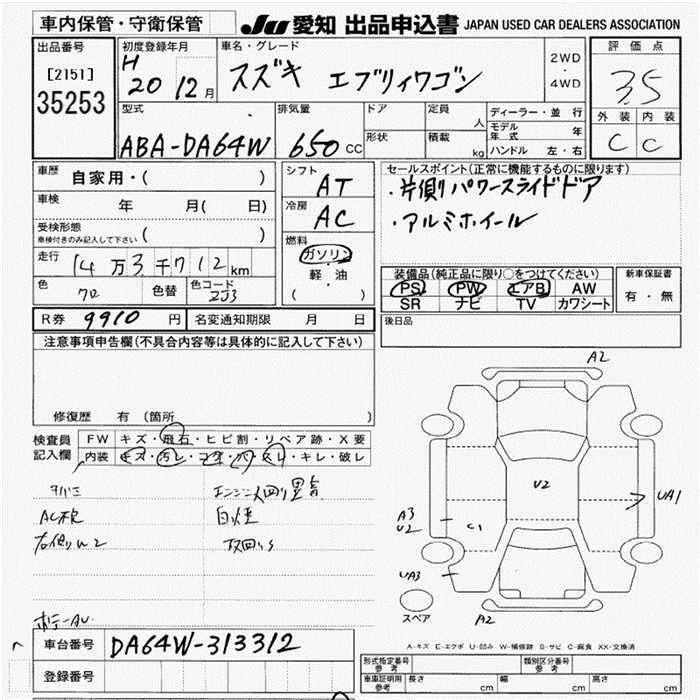 車内保管・守衛保管
JU 愛知 出品申込書 JAPAN USED CAR DEALERS ASSOCIATION
出品番号
[2151]
35253
初度登録年月
H 20 12 月
車名・グレード
スズキ エブリィワゴン
2WD
・
4WD
評価点
3.5
外装 内装
C C
型式
ABA-DA64W
排気量
650 CC
ドア
形状
定員 人
積載 kg
ディーラー・並 行
モデル年式 年
ハンドル 左・右
車歴 自家用・( )
車検 年 月( 日)
受検形態
車検付きのみ記入して下さい ( )
走行 14万3千712 km
色 クロ 色替 色コード ZJ3
シフト
AT
冷房
AC
燃料
ガソリン
・
軽・油
( )
セールスポイント(正常に機能するものに限ります)
・片側パワースライドドア
・アルミホイール
装備品(純正品に限り○をつけてください)
PS PW エアB AW
SR ナビ TV カワシート
新車保証書
有・無
R券 9910 円 名変通知期限 月 日
後日品
注意事項申告欄(不具合内容等は具体的に記入して下さい)
修復歴 有(箇所 )
検査員記入欄
FW キズ・飛石・ヒビ割・リペア跡・X要
内装 キズ・汚レ・コゲ・穴・スレ・キレ・破レ
エンジン
AC
白煙
ボデーAU
A2
U2
UA1
A3
U2
C1
UA3
A2
スペア
A-キズ E-エクボ U-凹み W-補修跡 S-サビ C-腐食 XX-交換済
車台番号 DA64W-313312
登録番号
形式指定番号 参考
類別区分番号 参考
車庫証明用 参考 長さ cm 幅 cm 高さ cm